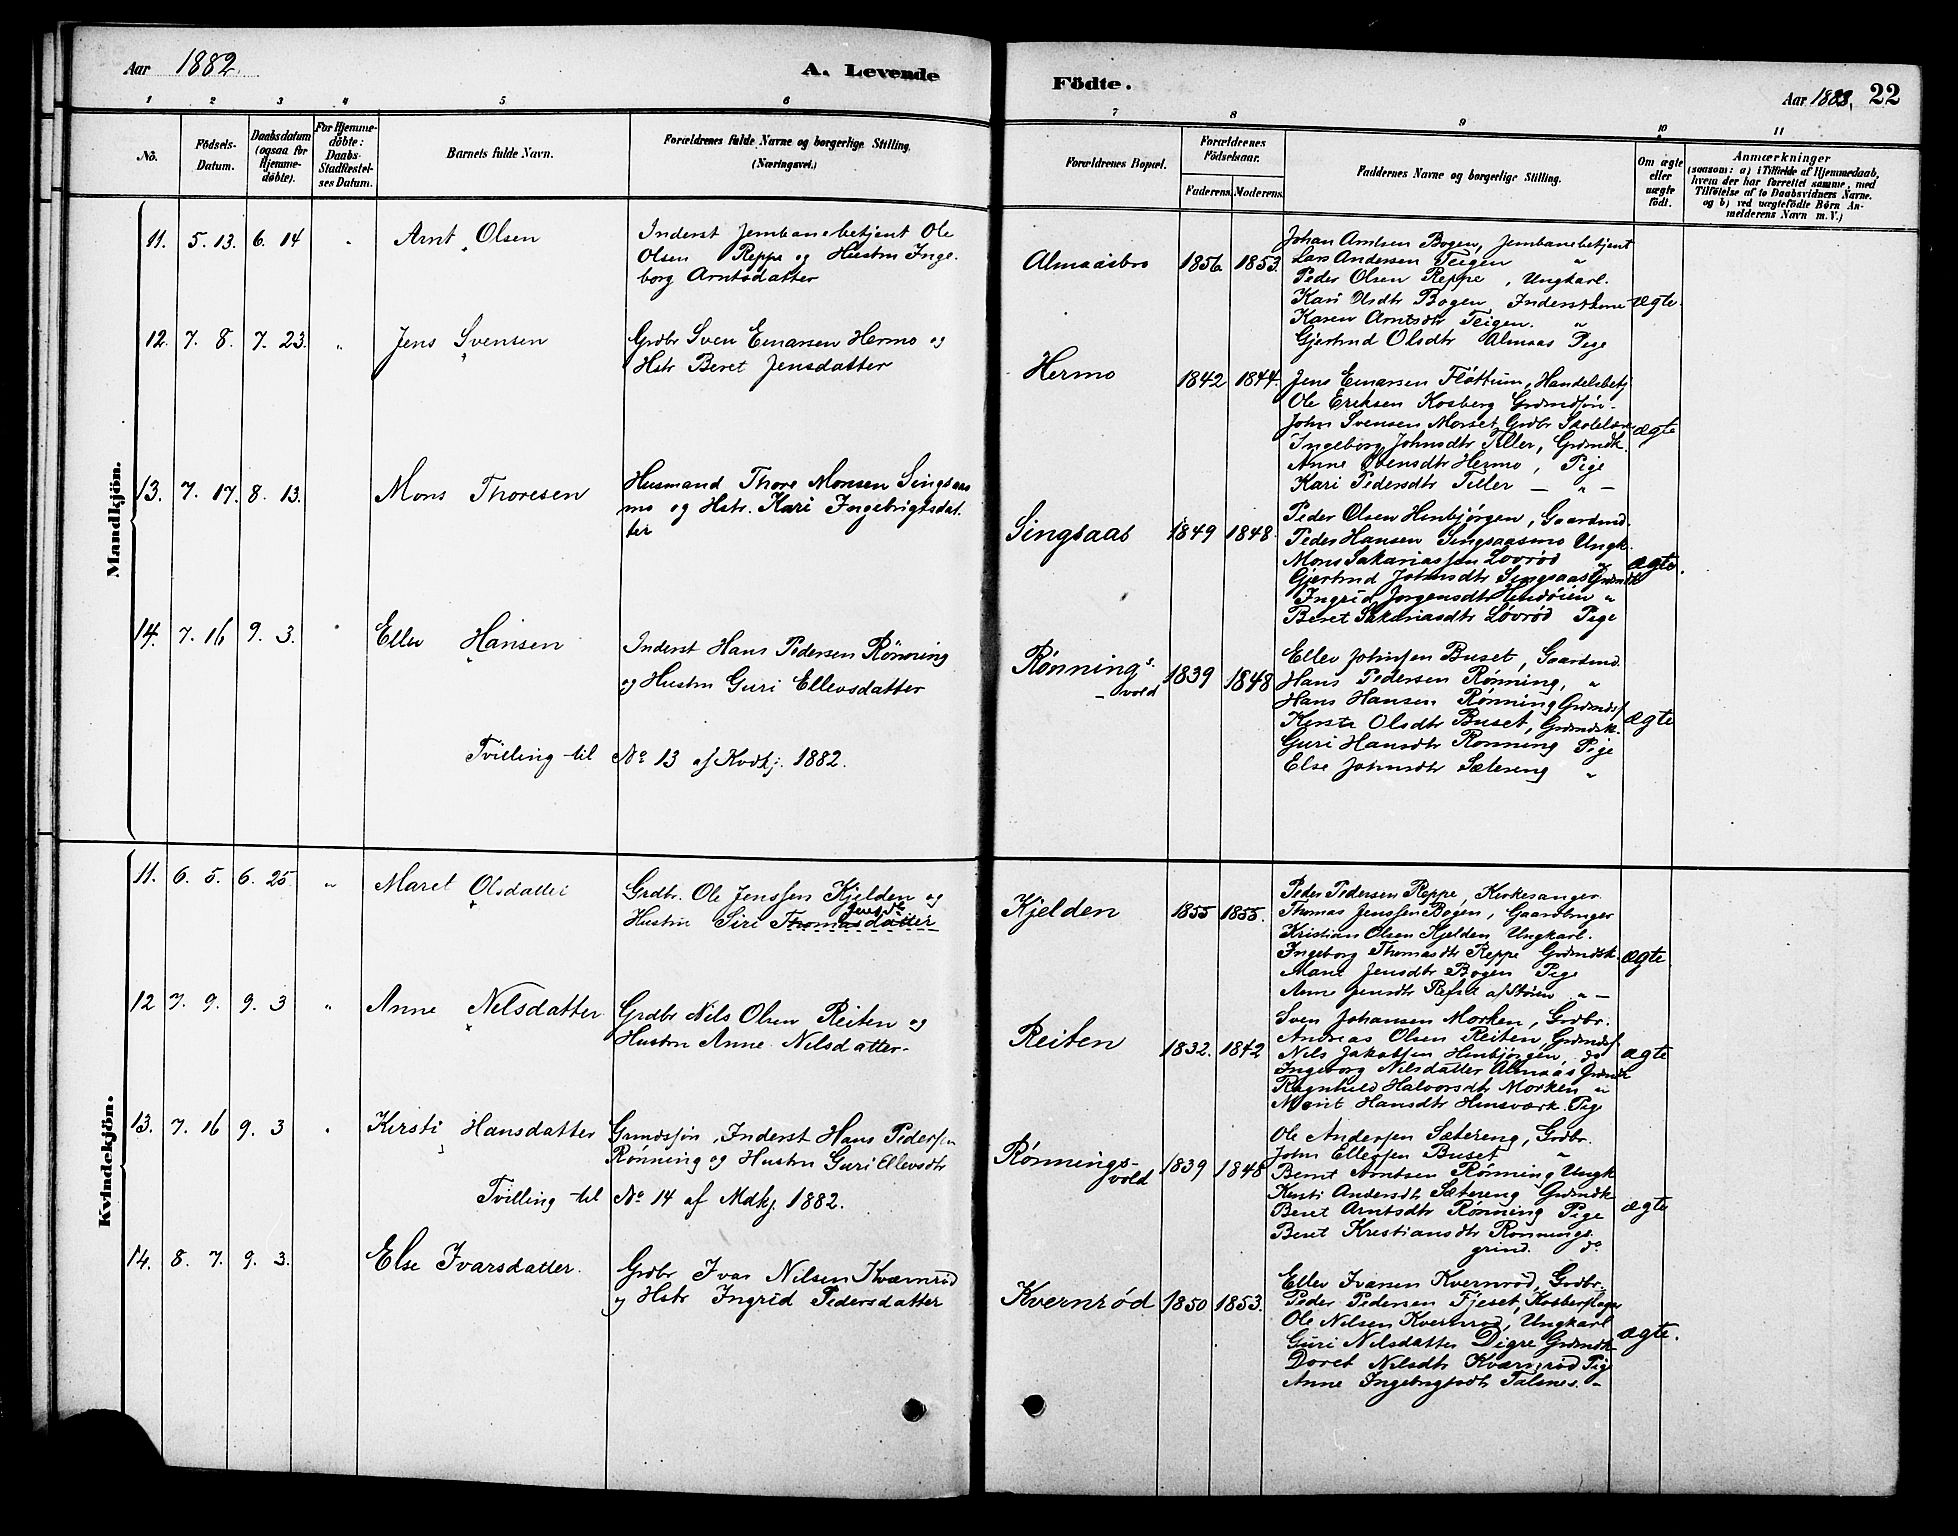 Aar 1882.
A. Levende
Födte.
Aar 1882. 22
1 2 3 4 5 6 7 8 9 10 11
No.
Födsels-
Datum.
Daabsdatum
(ogsaa for
Hjemme-
døbte).
For Hjemme-
døbte:
Daabs-
Stadfæstel-
ses Datum.
Barnets fulde Navn.
Forældrenes fulde Navne og borgerlige Stilling.
(Næringsvei.)
Forældrenes Bopæl.
Forældrenes
Födselsaar.
Faderens. Moderens.
Faddernes Navne og borgerlige Stilling.
Om ægte
eller
uægte
født.
Anmærkninger
(saasom: a) i Tilfælde af Hjemmedaab,
hvem der har forrettet samme, med
Tilföielse af to Daabsvidners Navne.
og b) ved uægtefödte Börn An-
melderens Navn m. V.)
Mandkjön.
11. 5. 13. 6. 14 " Arnt Olsen
Inderst Jernbanebetjent Ole
Olsen Reppe og Hustru Inge-
borg Arntsdatter
Almaasbro 1856 1853.
Johan Arntsen Bogen, Jernbanebetjent
Lars Andersen Teigen "
Peder Olsen Reppe, Ungkarl.
Kari Olsdtr Bogen Inderstkone
Karen Arntsdtr Teigen. "
Gjertrud Olsdtr Almaas Pige
ægte.
12. 7. 8. 7. 23. " Jens Svensen
Grdbr Sven Einarsen Hermo og
Hstr Beret Jensdatter
Hermo 1842 1844.
Jens Einarsen Fløttum, Handelsbetj
Ole Eriksen Kosberg Grdmdsøn.
John Svensen Morset Grdbr Skolelær
Ingeborg Johnsdtr Aller, Grdmdk.
Anne Svensdtr Hermo, Pige
Kari Pedersdtr Tiller — " —
ægte
13. 7. 17. 8. 13. Mons Thoresen
Husmand Thore Monsen Singsaas
mo og Hstr. Kari Ingebrigtsdat-
ter
Singsaas 1849 1848.
Peder Olsen Henbjørgen, Gaardmd.
Peder Hansen Singsaasmo Ungk.
Mons Sakariassen Lovrød "
Gjertrud Johnsdtr Singsaas Grdmdk
Ingrid Jørgensdtr Hindøien "
Beret Sakariasdtr Lovrød Pige
ægte.
14. 7. 16 9. 3. " Ellev Hansen
Inderst Hans Pedersen Rønning
og Hustru Guri Ellevsdatter
Tvilling til No 13 af Kvdkj. 1882.
Rønnings-
vold 1839 1848
Ellev Johnsen Buset, Gaardmd.
Hans Pedersen Rønning, "
Hans Hansen Rønning Grdmds.
Kirsti Olsdtr Buset, Grdmdsk.
Guri Hansdtr Rønning Pige
Else Johnsdtr Sætereng "
ægte
Kvindekjön.
11. 6. 5. 6. 25. " Maret Olsdatter
Grdbr. Ole Jenssen Kjelden og
Jensdtr
Hustru Siri Thomasdatter
Kjelden 1855 1855.
Peder Pedersen Reppe, Kirkesanger
Thomas Jenssen Bogen, Gaardbruger
Kristian Olsen Kjelden Ungkarl.
Ingeborg Thomasdtr Reppe Grdmdsk.
Mari Jensdtr Bogen Pige
Anne Jensdtr Refset af Støren " —
ægte
12 7. 9. 9. 3 " Anne Nilsdatter
Grdbr Nils Olsen Reiten og
Hustru Anne Nilsdatter.
Reiten 1832. 1842
Sven Johansen Morken, Grdbr.
Andreas Olsen Reiten, Grdmds
Nils Jakobsen Henbjørgen, do
Ingeborg Nilsdatter Almaas Grdmdk
Ragnhild Halvorsdtr Morken "
Marit Hansdtr Hensværk. Pige
ægte
13. 7. 16 9. 3 " Kirsti Hansdatter
Grmdsøn, Inderst Hans Pedersen
Rønning og Hustru Guri Ellevsdtr
Tvilling til No 14 af Mdkj. 1882.
Rønnings-
vold 1839 1848
Ole Andersen Sætereng, Grdbr.
John Ellevsen Buset "
Bernt Arntsen Rønning Ungk
Kirsti Andersdtr Sætereng Grdmdk
Beret Arntsdtr Rønning Pige
Beret Kristiansdtr Rønnings-
grind. do
ægte
14. 8. 7. 9. 3. Else Ivarsdatter.
Grdbr Ivar Nilsen Kværnrød
og Hstr Ingrid Pedersdatter
Kvernrød 1850 1853.
Ellev Ivarsen Kvernrød, Grdbr.
Peder Pedersen Fjeset,
Ole Nilsen Kvernrød, Ungkarl
Guri Nilsdatter Digre Grdmdk
Doret Nilsdtr Kværnrød Pige
Anne Ingebrigtsdtr Talsnes. "
ægte.